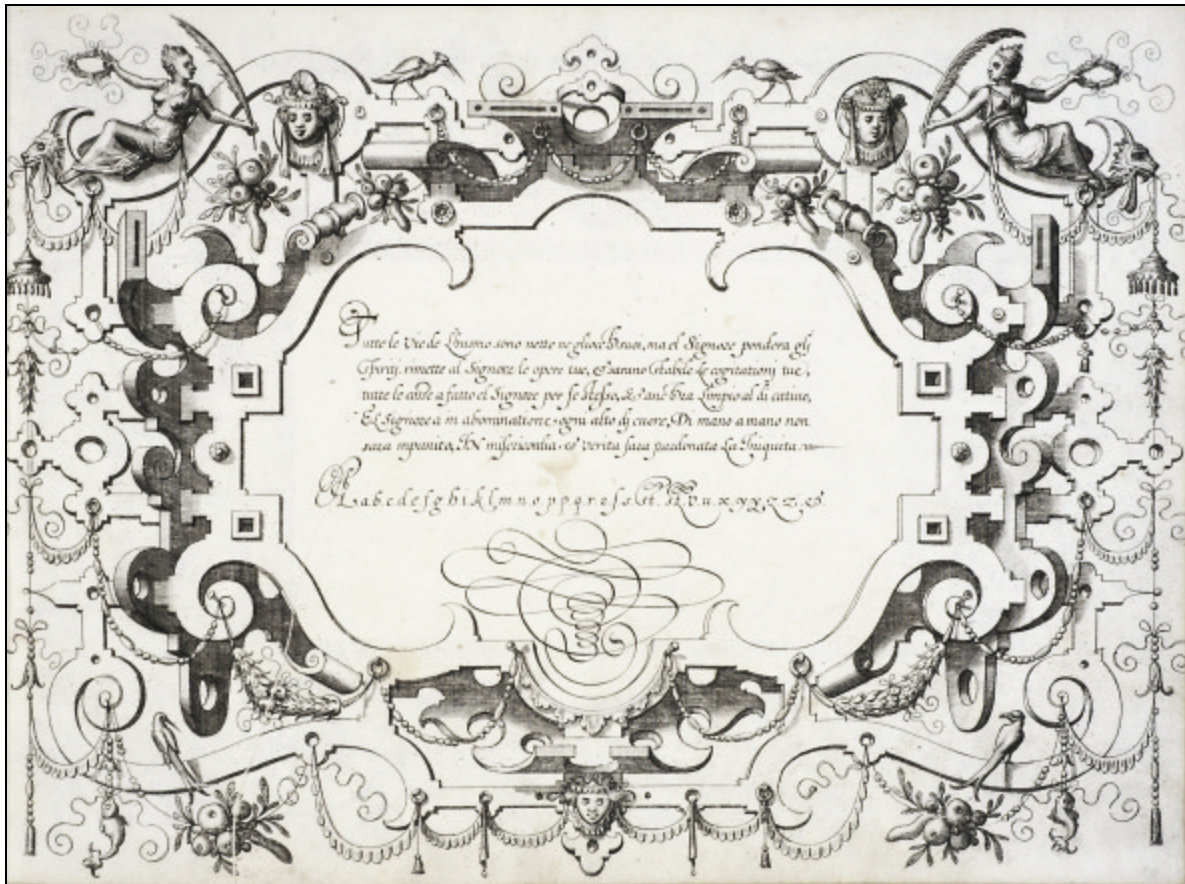 Tutte le Vie de Lhuomo sono nette ne gliocchi suoi, ma el Signore pondera gli
Spiriti. rimette al Signore le opere tue, & saranno stabile le cogitationi tue,
tutte le cose a fatto el Signore per se stesso, & Limpio al di cativo,
El Signore a in abominatione ogni alto di cuore, Di mano a mano non
sara impunito, IN misericordia & verita sara perdonata La Iniquita
a.b.c.d.e.f.g.h.i.k.l.m.n.o.p.p.q.r.s.ſ.s.st.v.u.x.y.y.z.z.&